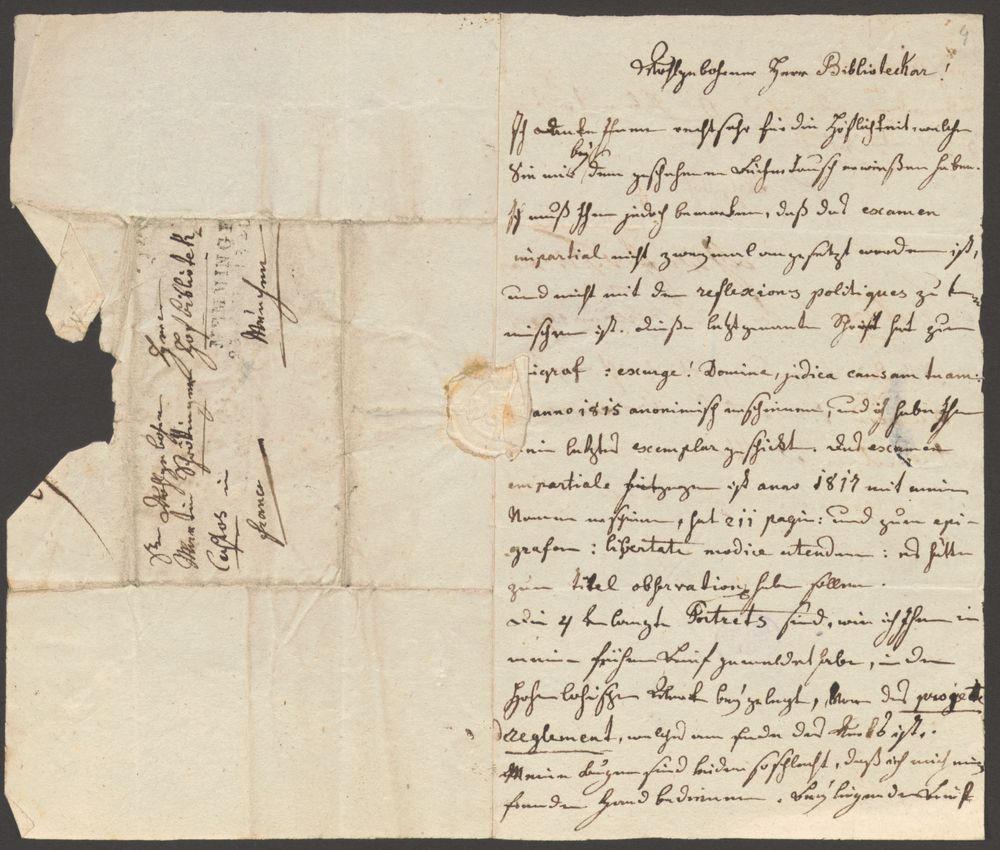 4
Wohlgebohrner Herr Bibliotekar!
Ich danke Ihnen recht sehr für die Höflichkeit, welche
bey
Sie mir dem geschehenen Büchertausch erwießen haben.
Ich muß Ihnen jedoch bemerken, daß das examen
impartial nicht zweymal angesetzt worden ist,
und nicht mit den reflexions politiques zu ver-
mischen ist. Dieße letztgenante Schrift hat zum
igraf : exurge! Domine, judica causam tuam:
anno 1815 anonimisch erschienen, und ich habe Ihnen
mein letztes exemplar geschickt. Das examen
impartiale ist anno 1817 mit meinem
Namen erschienen, hat 211 pagin: und zum epi-
grafen : libertate modice utendum : es hätte
zum titel observations haben sollen.
Die 4 verlangte Portrets sind, wie ich Ihnen in
meinem frühern Brief gemeldet habe, in dem
Hohenlohischen Werk beygelegt, das projet
de reglement, welches am Ende des Werks ist.
Meine Augen sind leider so schlecht, daß ich mich einer
fremden Hand bedienen. Beyliegenden Brief
Sr Wohlgebohrn
Herrn
Martin Schrettinger
Custos der Hofbibliotek
in
München
franco
MEMMINGEN